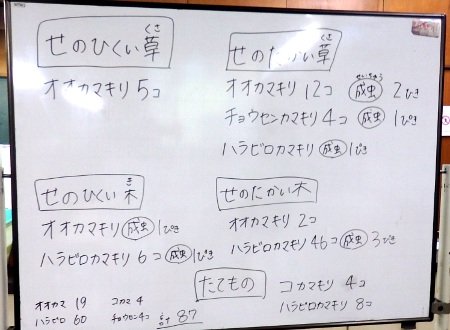 せのひくい草
くさ
オオカマキリ 5コ
せのたかい草
くさ
オオカマキリ 12コ 成虫 2ひき
せいちゅう
チョウセンカマキリ 4コ 成虫 1ぴき
ハラビロカマキリ 成虫 1ぴき
せのひくい木
き
オオカマキリ 成虫 1ぴき
ハラビロカマキリ 6コ 成虫 1ぴき
せのたかい木
オオカマキリ 2コ
ハラビロカマキリ 46コ 成虫 3びき
たてもの
コカマキリ 4コ
ハラビロカマキリ 8コ
オオカマ 19 コカマ 4
ハラビロ 60 チョウセン4コ
87